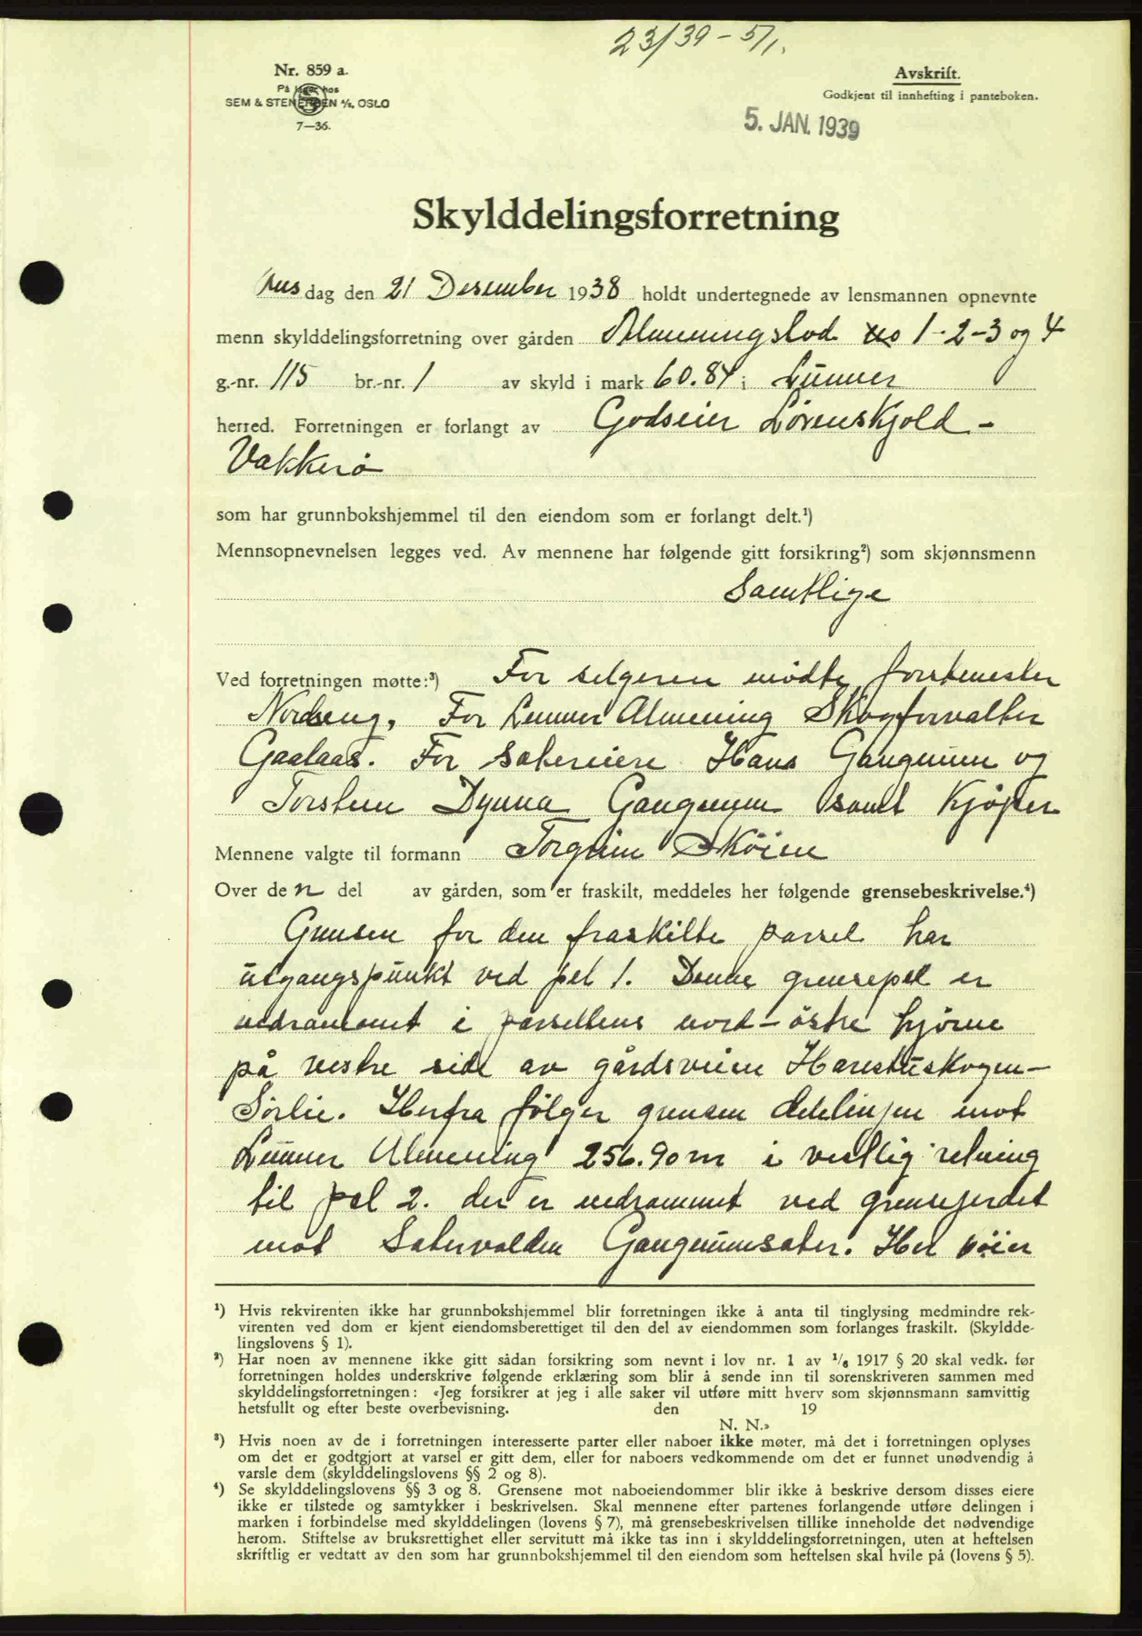 23/39 - 5/1.
Nr. 859 a.
På lager hos
SEM & STENERSEN A/S, OSLO
7—36.
Avskrift.
Godkjent til innhefting i panteboken.
5. JAN. 1939
Skylddelingsforretning
Onsdag den 21 Desember 1938 holdt undertegnede av lensmannen opnevnte
menn skylddelingsforretning over gården Almenningslod no 1-2-3 og 4
g.-nr. 115 br.-nr. 1 av skyld i mark 60.84 i Lunner
herred. Forretningen er forlangt av Godseier Løvenskjold -
Vækkerø
som har grunnbokshjemmel til den eiendom som er forlangt delt.¹)
Mennsopnevnelsen legges ved. Av mennene har følgende gitt forsikring²) som skjønnsmenn
Samtlige
Ved forretningen møtte:³) For selgeren mødte forstmester
Nordseng. For Lunner Almening Skogforvalter
Gaalaas. For sætereiere Hans Gangnum og
Torstein Dynna Gangnum samt kjøper
Mennene valgte til formann Torgrim Skøien
Over den del av gården, som er fraskilt, meddeles her følgende grensebeskrivelse.⁴)
Grensen for den fraskilte parsel har
utgangspunkt ved pel 1. Denne grensepel er
nedrammet i parsellens nord-østre hjørne
på vestre side av gårdsveien Harestuskogen-
Sörlie. Herfra følger grensen delelinjen mot
Lunner Almening 256.90 m i vestlig retning
til pel 2. der er nedrammet ved grensegjerdet
mot Setervolden Gangnumseter. Her bøier
¹) Hvis rekvirenten ikke har grunnbokshjemmel blir forretningen ikke å anta til tinglysing medmindre rek-
virenten ved dom er kjent eiendomsberettiget til den del av eiendommen som forlanges fraskilt. (Skyldde-
lingslovens § 1).
²) Har noen av mennene ikke gitt sådan forsikring som nevnt i lov nr. 1 av 1/6 1917 § 20 skal vedk. før
forretningen holdes underskrive følgende erklæring som blir å sende inn til sorenskriveren sammen med
skylddelingsforretningen: «Jeg forsikrer at jeg i alle saker vil utføre mitt hverv som skjønnsmann samvittig
hetsfullt og efter beste overbevisning. den 19
N. N.»
³) Hvis noen av de i forretningen interesserte parter eller naboer ikke møter, må det i forretningen oplyses
om det er godtgjort at varsel er gitt dem, eller for naboers vedkommende om det er funnet unødvendig å
varsle dem (skylddelingslovens §§ 2 og 8).
⁴) Se skylddelingslovens §§ 3 og 8. Grensene mot naboeiendommer blir ikke å beskrive dersom disses eiere
ikke er tilstede og samtykker i beskrivelsen. Skal mennene efter partenes forlangende utføre delingen i
marken i forbindelse med skylddelingen (lovens § 7), må grensebeskrivelsen tillike inneholde det nødvendige
herom. Stiftelse av bruksrettighet eller servitutt må ikke tas inn i skylddelingsforretningen, uten at heftelsen
skriftlig er vedtatt av den som har grunnbokshjemmel til den eiendom som heftelsen skal hvile på (lovens § 5).